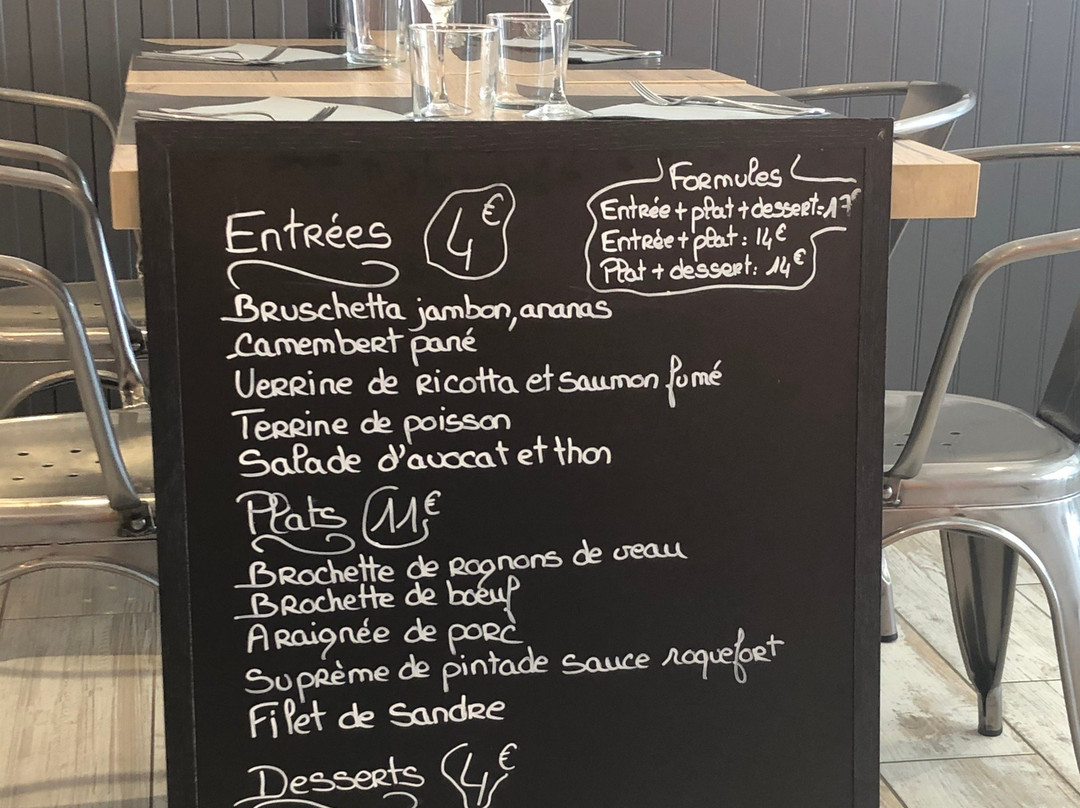 Formules
Entrée + plat + dessert: 17€
Entrée + plat : 14€
Plat + dessert: 14€
Entrées 4€
Bruschetta jambon, ananas
Camembert pané
Verrine de ricotta et saumon fumé
Terrine de poisson
Salade d'avocat et thon
Plats 11€
Brochette de rognons de veau
Brochette de boeuf
Araignée de porc
Suprème de pintade sauce roquefort
Filet de Sandre
Desserts 4€